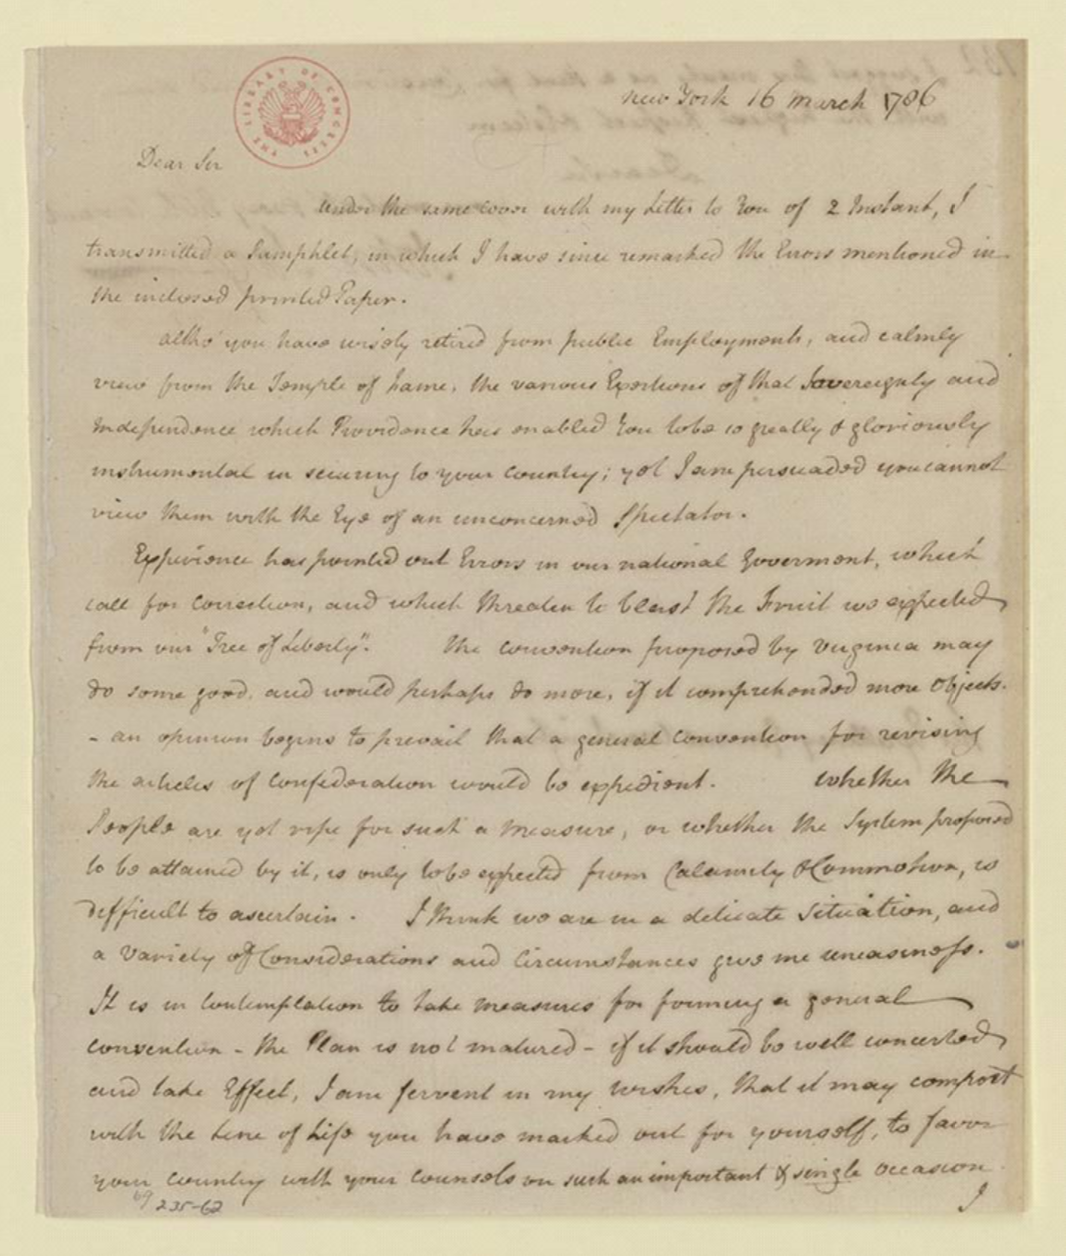 THE LIBRARY OF CONGRESS
New York 16 March 1786
Dear Sir
Under the same cover with my Letter to You of 2 Instant, I
transmitted a Pamphlet, in which I have since remarked the Errors mentioned in
the inclosed printed Paper.
altho' you have wisely retired from public Employments, and calmly
view from the Temple of Fame, the various Exertions of that Sovereignty and
Independence which Providence has enabled You to be so greatly & gloriously
instrumental in securing to your country; yet I am persuaded you cannot
view them with the Eye of an unconcerned Spectator.
Experience has pointed out Errors in our national Goverment, which
call for correction, and which threaten to blast the Fruit we expected
from our "Tree of Liberty". The convention proposed by Virginia may
do some good, and would perhaps do more, if it comprehended more Objects.
- an opinion begins to prevail that a general convention for revising
the articles of Confederation would be expedient. Whether the
People are yet ripe for such a Measure, or whether the System proposed
to be attained by it, is only to be expected from Calamity & Commotion, is
difficult to ascertain. I think we are in a delicate Situation, and
a Variety of Considerations and Circumstances give me uneasiness.
It is in Contemplation to take measures for forming a general
convention - the Plan is not matured - if it should be well concerted
and take Effect, I am fervent in my wishes, that it may comport
with the Line of Life you have marked out for yourself, to favor
your country with your counsels on such an important & single occasion.
I
235-62